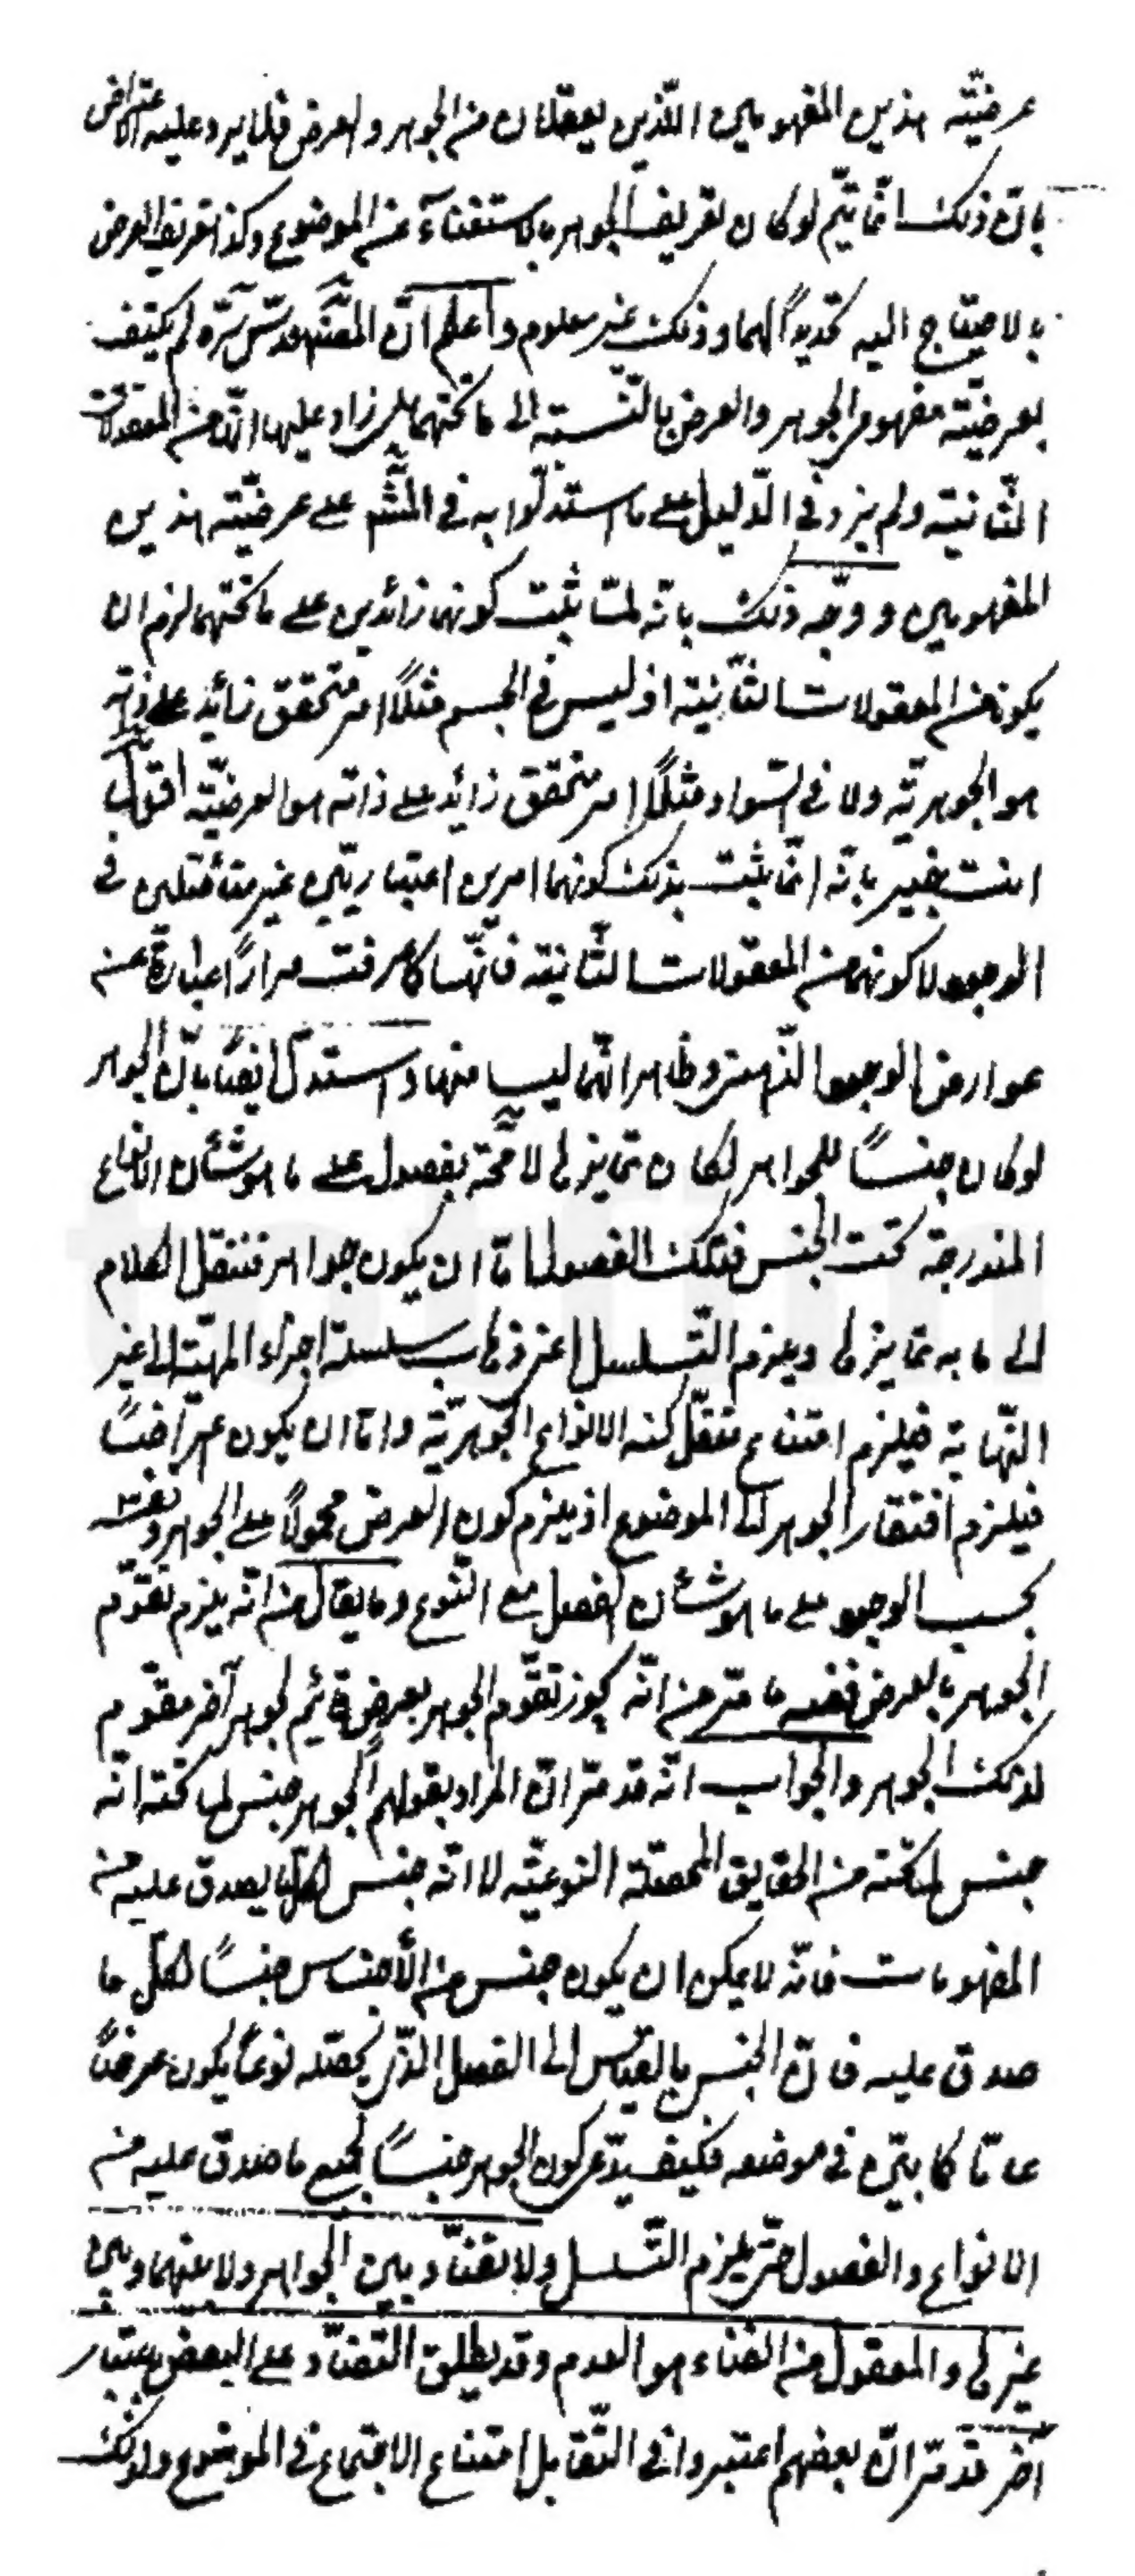 عرضيّته هذين المفهومين اللّذين يعقلان من الجوهر والعرض فلا يرد عليه اعتراض
بانّ ذلك انّما يتمّ لو كان تعريف الجوهر بالاستغناء عن الموضوع وكذا تعريف العرض
بالاحتياج اليه تحديداً لهما وذلك غير معلوم واعلم انّ المصنّف قدّس سرّه لم يكتف
بعرضيّته مفهوم الجوهر والعرض بالنّسبته الى ما تحتهما بل زاد عليها انّه من المعقولات
الثّانيته ولم يزد في الدّليل على ما استدلّوا به في المشّهر على عرضيّته هذين
المفهومين ووجّه ذلك بانّه لمّا ثبت كونهما زائدين على ما تحتهما لزم ان
يكونا من المعقولات الثّانيته اذ ليس في الجسم مثلاً امر متحقق زائد على ذاته
هو الجوهريّه ولا في السّواد مثلاً امر متحقق زائد على ذاته هو العرضيّته اقول
انت خبير بانّه انّما يثبت بذلك كونهما امرين اعتباريّين غير متأصّلين في
الوجود لا كونهما من المعقولات الثّانيته فانّها كما عرفت مراراً عبارة عن
عوارض الوجود الذّهني وظاهر انّهما ليسا منها واستدلّ ايضاً بانّ الجوهر
لو كان جنساً للجواهر لكان تمايزها لا محة بفصول على ما هو شأن الانواع
المندرجة تحت الجنس فتلك الفصول امّا ان يكون جواهر فننقل الكلام
الى ما به تمايزها ويلزم التّسلسل اعني ذهاب سلسلة اجزاء المهيّته الى غير
النّهاية فيلزم امتناع تعقّل كنه الانواع الجوهريّة وامّا ان يكون اعراضاً
فيلزم افتقار الجوهر الى الموضوع اذ يلزم كون العرض محمولاً على الجوهر ونفسه
بحسب الوجود على ما هو شأن الفصل مع النّوع وما يقال من انّه يلزم تقوّم
الجوهر بالعرض ففيه ما مرّ من انّه يجوز تقوّم الجوهر بعرض قائم بجوهر آخر مقوّم
لذلك الجوهر والجواب انّه قد مرّ انّ المراد بقولهم الجوهر جنس لما تحته انّه
جنس لما تحته من الحقايق المحصّلة النوعيّه لا انّه جنس لكلّ ما يصدق عليه من
المفهومات فانّه لا يمكن ان يكون جنس من الأجناس جنساً لكلّ ما
صدق عليه فانّ الجنس بالقياس الى الفصل الذّي يحصّله نوعاً يكون عرضاً
عامّا كما بيّن في موضعه فكيف يدّعى كون الجوهر جنساً لجميع ما صدق عليه من
الانواع والفصول حتّى يلزم التّسلسل ولا تضادّ بين الجواهر ولا بينها وبين
غيرها والمعقول من الفناء هو العدم وقد يطلق التضادّ على البعض باعتبار
آخر قد مرّ انّ بعضهم اعتبروا في التّقابل امتناع الاجتماع في الموضوع ولذلك